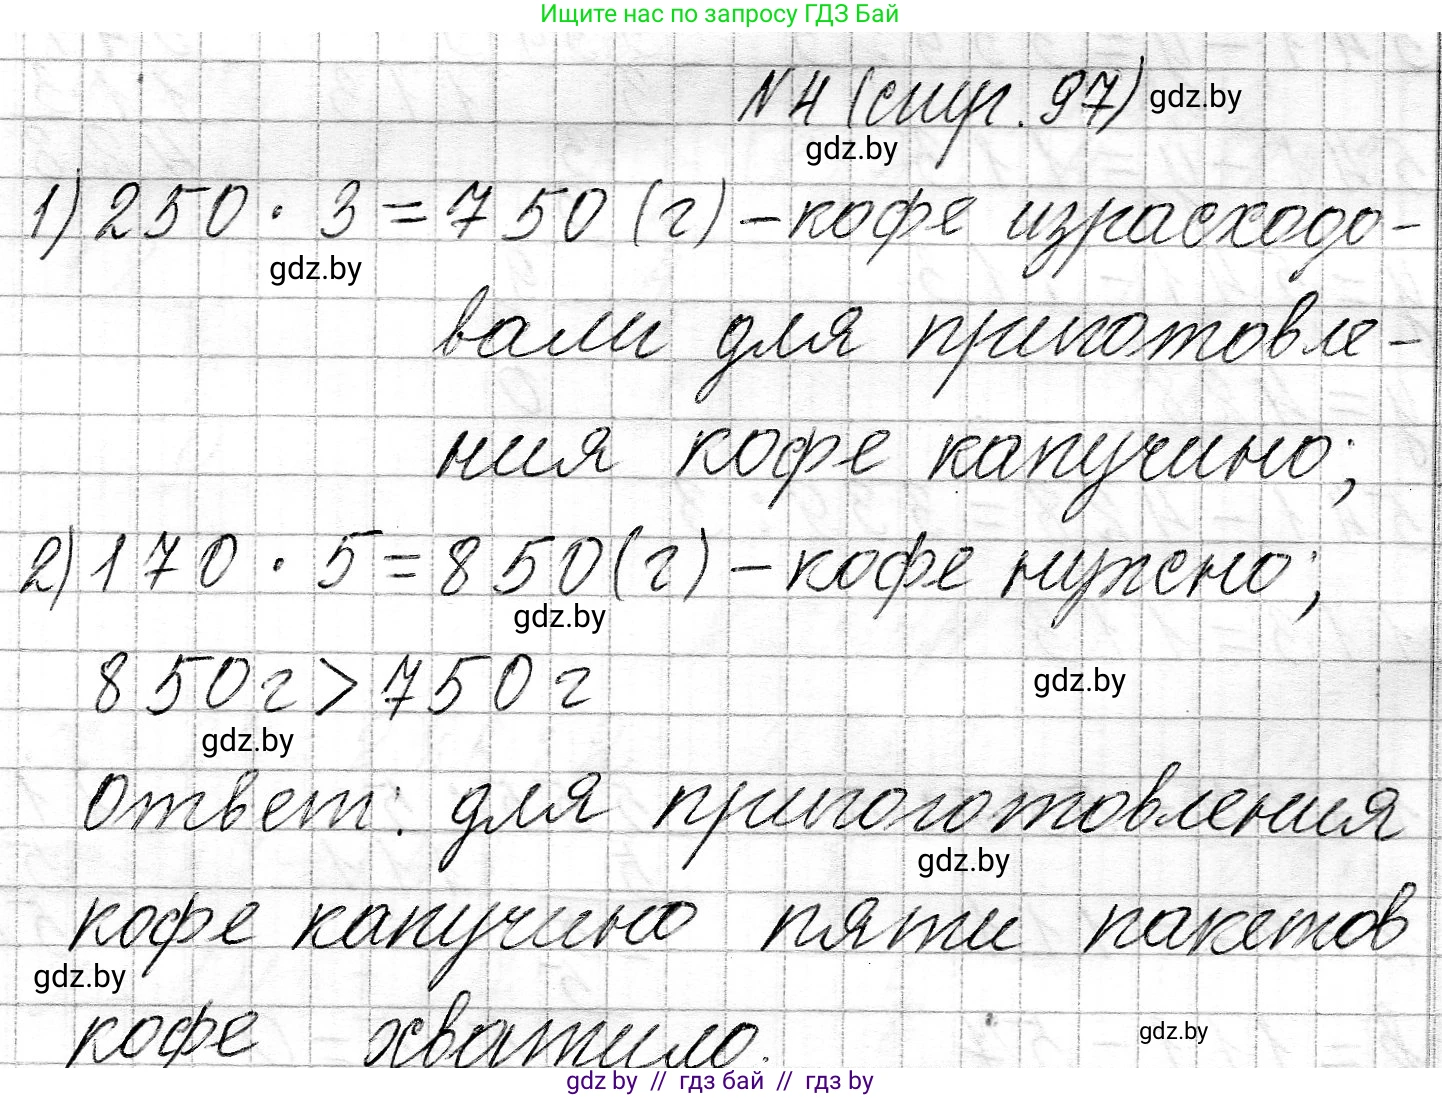 Ищите нас по запросу ГДЗ Бай
№4 (стр. 97) gdz.by
gdz.by
1) 250 · 3 = 750 (г) – кофе израсходо-
gdz.by
вали для приготовле-
ния кофе капучино;
2) 170 · 5 = 850 (г) – кофе нужно;
gdz.by
850 г > 750 г
gdz.by
gdz.by
Ответ: для пригоготовления
gdz.by
кофе капучино пяти пакетов
gdz.by
кофе хватило.
gdz.by
gdz by // гдз бай // гдз by